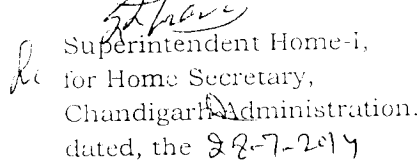 Superintendent Home-i,
for Home Secretary,
Chandigarh Administration.
dated, the 28-7-2014